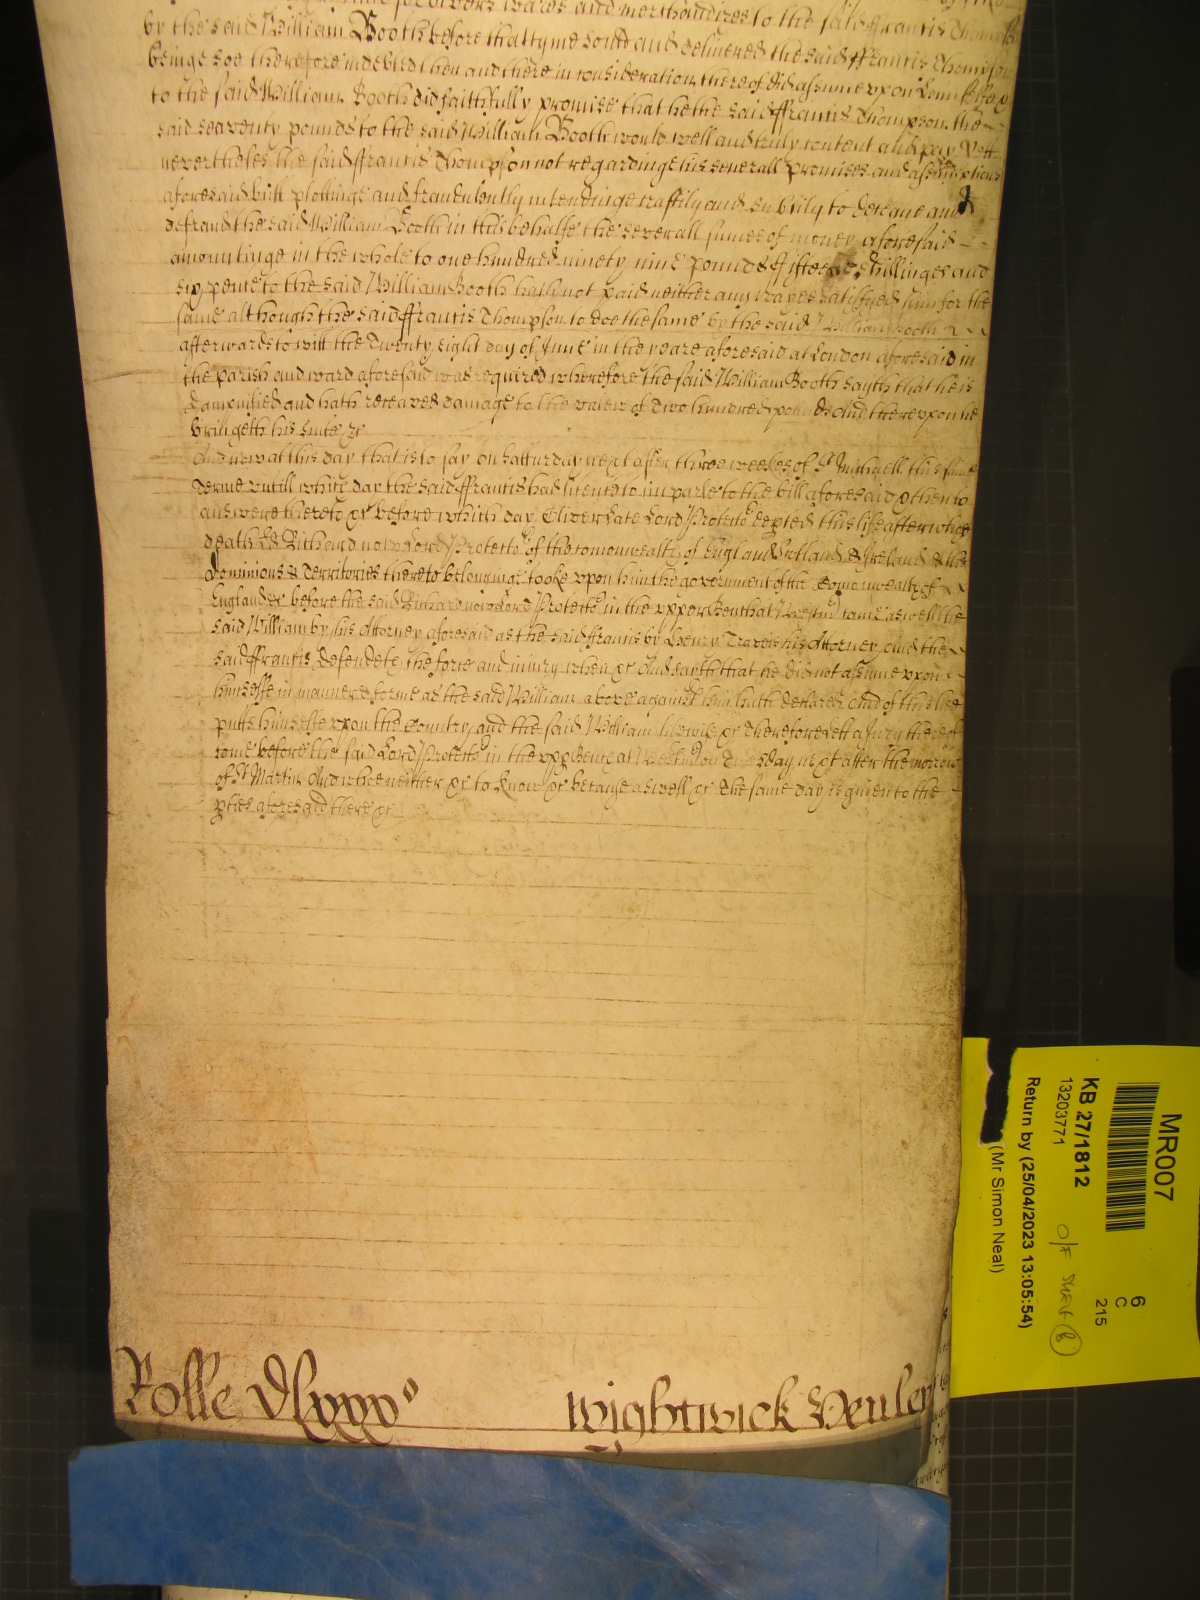 for divers wares and merchandizes to the said ffrancis Thompson
by the said William Booth before that tyme sould and delivered the said ffrancis Thompson
beinge soe therefore indebted then and there in consideracion thereof did assume upon himselfe &
to the said William Booth did faithfully promise that he the said ffrancis Thompson the
said seaventy pounds to the said William Booth would well and truly content and pay Yett
nevertheles the said ffrancis Thompson not regardinge his severall promises and assumptions
aforesaid butt plottinge and fraudulently intendinge craftily and subtily to deceave and
defraud the said William Booth in this behalfe the severall sumes of money aforesaid
amountinge in the whole to one hundred ninety nine pounds fifteene shillinges and
six pence to the said William Booth hath not paid neither any wayes satisfyed him for the
same although the said ffrancis Thompson to doe the same by the said William Booth
afterwards to witt the Twenty eight day of June in the yeare aforesaid at London aforesaid in
the parish and ward aforesaid was required wherefore the said William Booth sayth that he is
dampnified and hath receaved damage to the valew of Two hundred pounds And thereupon he
bringeth his suite &c
And now at this day that is to say on Satturday next after three weekes of St Michaell this same
Terme untill which day the said ffrancis had licence to imparle to the bill aforesaid & then to
answere thereto &c before which day Oliver late Lord Protector depted this life after whose
death Ld Richard now Lord Protector of the comonwealth of England Scotland & Ireland & the
Dominions & Territories thereto belonginge tooke upon him the government of the Comonwealth of
England &c before the said Richard now Lord Protector in the upper Bench at Westmr came aswell the
said William by his Attorney aforesaid as the said ffrancis by Henry Travis his Attorney And the
said ffrancis defendeth the force and injury when &c And sayth that he did not assume upon
himselfe in manner & forme as the said William above against him hath declared And of this hee
putts himselfe upon the Country and the said William likewise &c Therefore lett a Jury thereof
come before the said Lord Protector in the upp Bench at Westmr on Tuesday next after the morrow
of St Martin And who neither &c to know &c because aswell &c The same day is given to the
pties aforesaid there &c
Rolle Dlxxxo
Wightwick Henley
MR007
KB 27/1812
13203771
6
C
215
O/F Shelf (B)
Return by (25/04/2023 13:05:54)
(Mr Simon Neal)